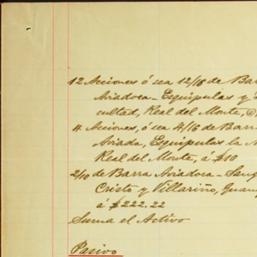 12 Acciones ó sea 12/16 de Barr
Aviadora - Esquipulas y
cultad, Real del Monte, @
4 Acciones, ó sea 4/16 de Barr
Aviada, Esquipulas la
Real del Monte, á $10
2/10 de Barra Aviadora - Sang
Cristo y Villariño, Guan
á $222.22
Suma el Activo
Pasivo